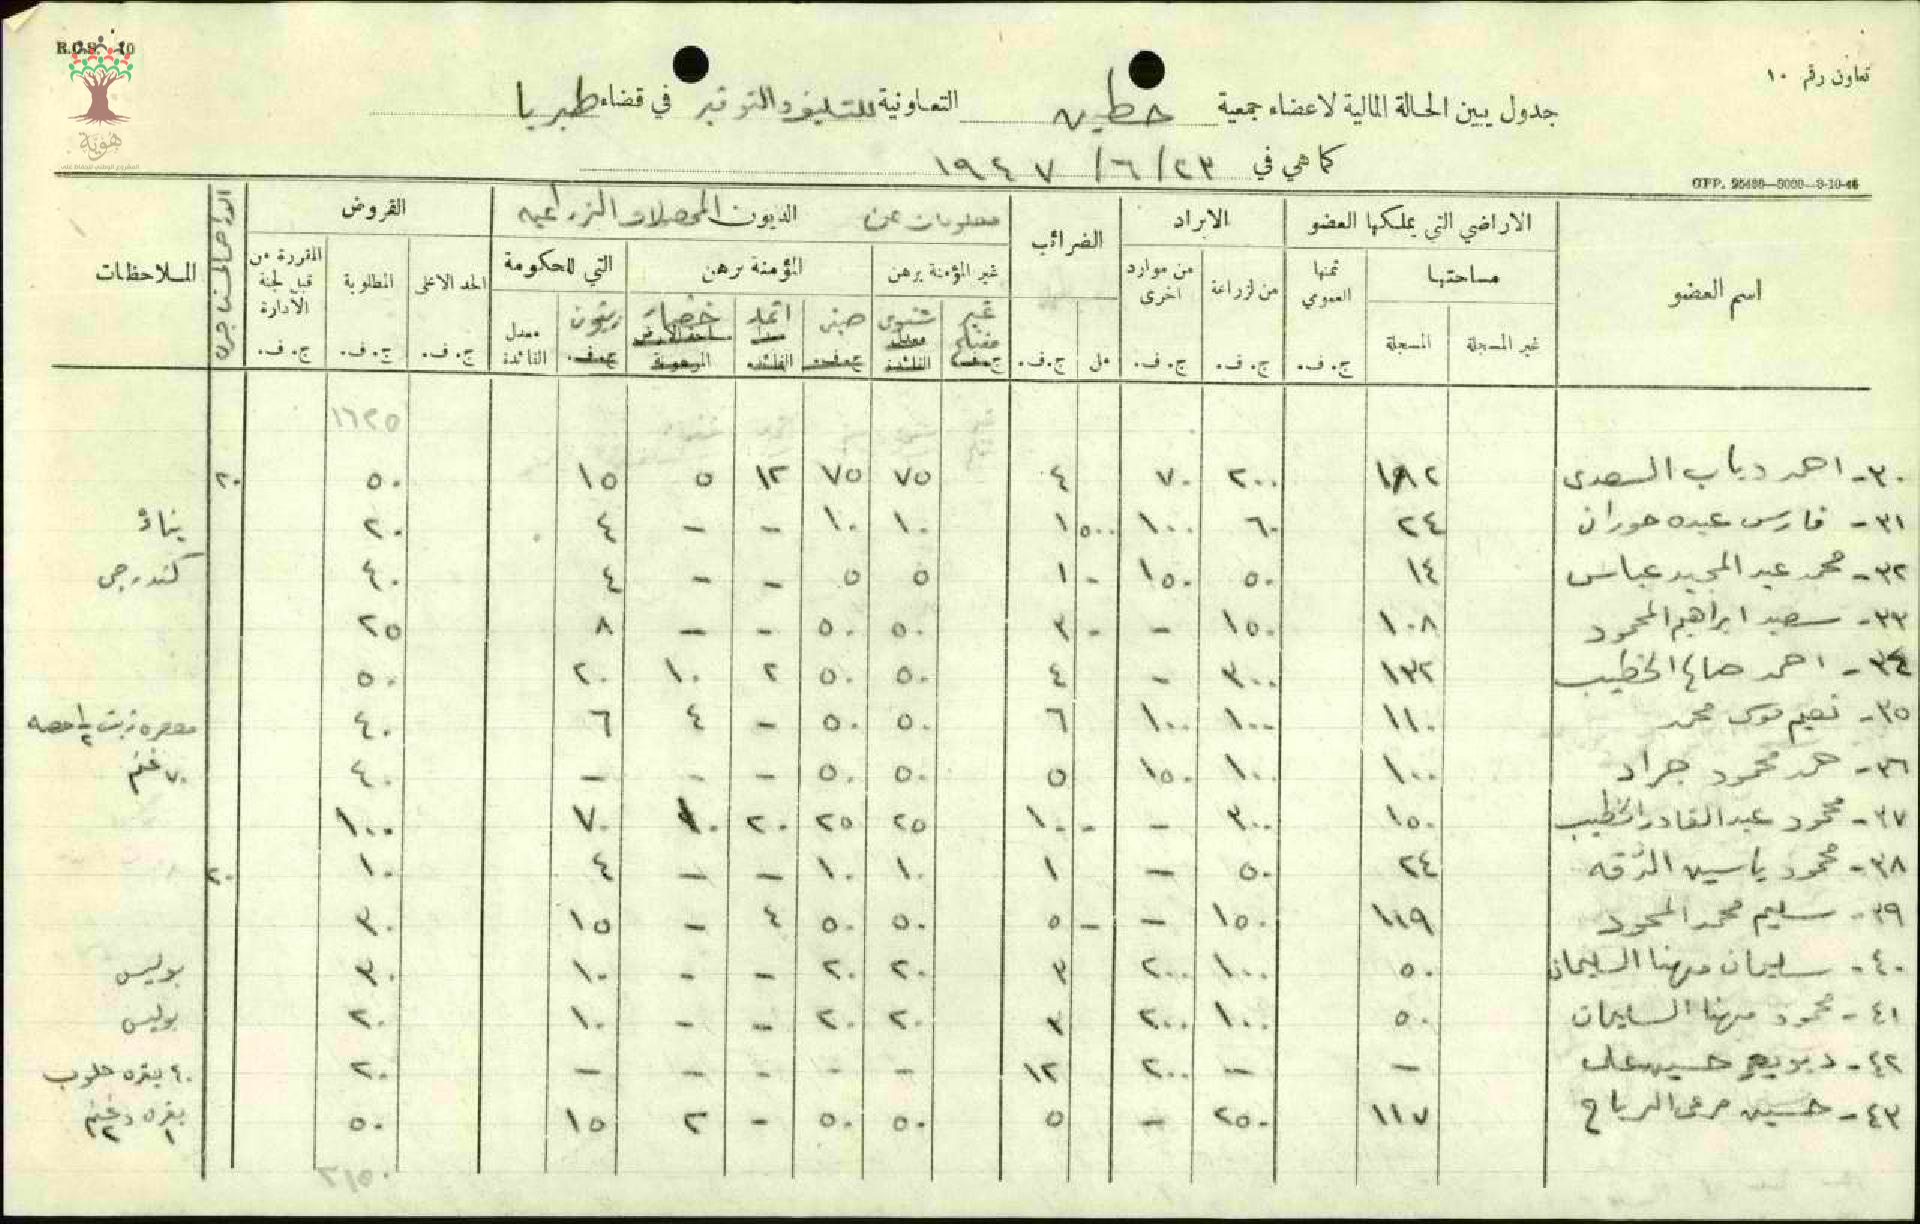 R.C.S. 10
تعاون رقم ١٠
هَوِيَّة
جدول يبين الحالة المالية لاعضاء جمعية حطين التعاونية للتسليف والتوفير في قضاء طبريا
كما هي في ٢٣/٦/١٩٤٧
GPP. 25489—3000—9-10-46
اسم العضو
الاراضي التي يملكها العضو
مساحتها
غير المسجلة
المسجلة
ثمنها العمومي
ج. ف.
الايراد
من لزراعة
ج. ف.
من موارد اخرى
ج. ف.
الضرائب
مل
ج. ف.
معلومات عن الديون المحصولات الزراعيه
غير المؤمنة برهن
المؤمنة برهن
التي للحكومة
شتوي
معدل الفائدة
صيفي
ج. ف.
معدل الفائدة
مساحة الارض المرهونة
زيتون
ج. ف.
معدل الفائدة
القروض
الحد الاعلى
ج. ف.
المطلوبة
ج. ف.
المقررة من قبل لجنة الادارة
ج. ف.
الملاحظات
١٦٢٥
٣٠- احمد دياب السعدي ١٨٢ ٢٠٠ ٧٠ ٤ ٧٥ ٧٥ ١٢ ٥ ١٥ ٥٠ ٢٠
٣١- فارس عبده حوران ٢٤ ٦٠ ١٠٠ ٥٠٠ ١ ١٠ ١٠ - - ٤ ٢٠ بناء
٣٢- محمد عبد المجيد عباس ١٤ ٥٠ ١٥٠ - ١ ٥ ٥ - - ٤ ٤٠ كندرجي
٣٣- سعيد ابراهيم المحمود ١٠٨ ١٥٠ - - ٣ ٥٠ ٥٠ - - ٨ ٢٥
٣٤- احمد صالح الخطيب ١٣٢ ٣٠٠ - ٤ ٥٠ ٥٠ ٢ ١٠ ٢٠ ٥٠
٣٥- نعيم موسى محمد ١١٠ ١٠٠ ١٠٠ ٦ ٥٠ ٥٠ - ٤ ٦ ٤٠ معصره زيت ١/٢ حصه
٣٦- حمد محمود جراد ١٠٠ ١٠٠ ١٥٠ ٥ ٥٠ ٥٠ - - - ٤٠ ٧٠ غنم
٣٧- محمود عبد القادر الخطيب ١٥٠ ٣٠٠ - - ١٠ ٢٥ ٢٥ ٢٠ ١٠ ٧٠ ١٠٠
٣٨- محمود ياسين الزقه ٢٤ ٥٠ - ١ ١٠ ١٠ - - ٤ ١٠ ٢٠
٣٩- سليم محمد المحمود ١١٩ ١٥٠ - - ٥ ٥٠ ٥٠ ٤ - ١٥ ٣٠
٤٠- سليمان مهنا السليمان ٥٠ ١٠٠ ٢٠٠ ٣ ٢٠ ٢٠ - - ١٠ ٣٠ بوليس
٤١- محمود مهنا السليمان ٥٠ ١٠٠ ٢٠٠ ٣ ٢٠ ٢٠ - - ١٠ ٢٠ بوليس
٤٢- حسين علي - - ٢٠٠ ١٢ - - - - - ٢٠ ٤٠ بقره حلوب
٤٣- حسين مرعي الرباح ١١٧ ٢٥٠ - ٥ ٥٠ ٥٠ - ٢ ١٥ ٥٠ بقره وغنم
٢١٥٠